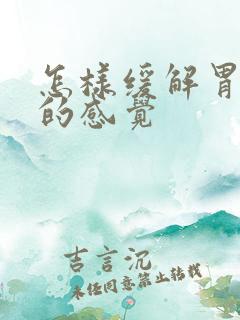 怎樣缓解胃
的感覺
吉言沉
未任同意禁止转载